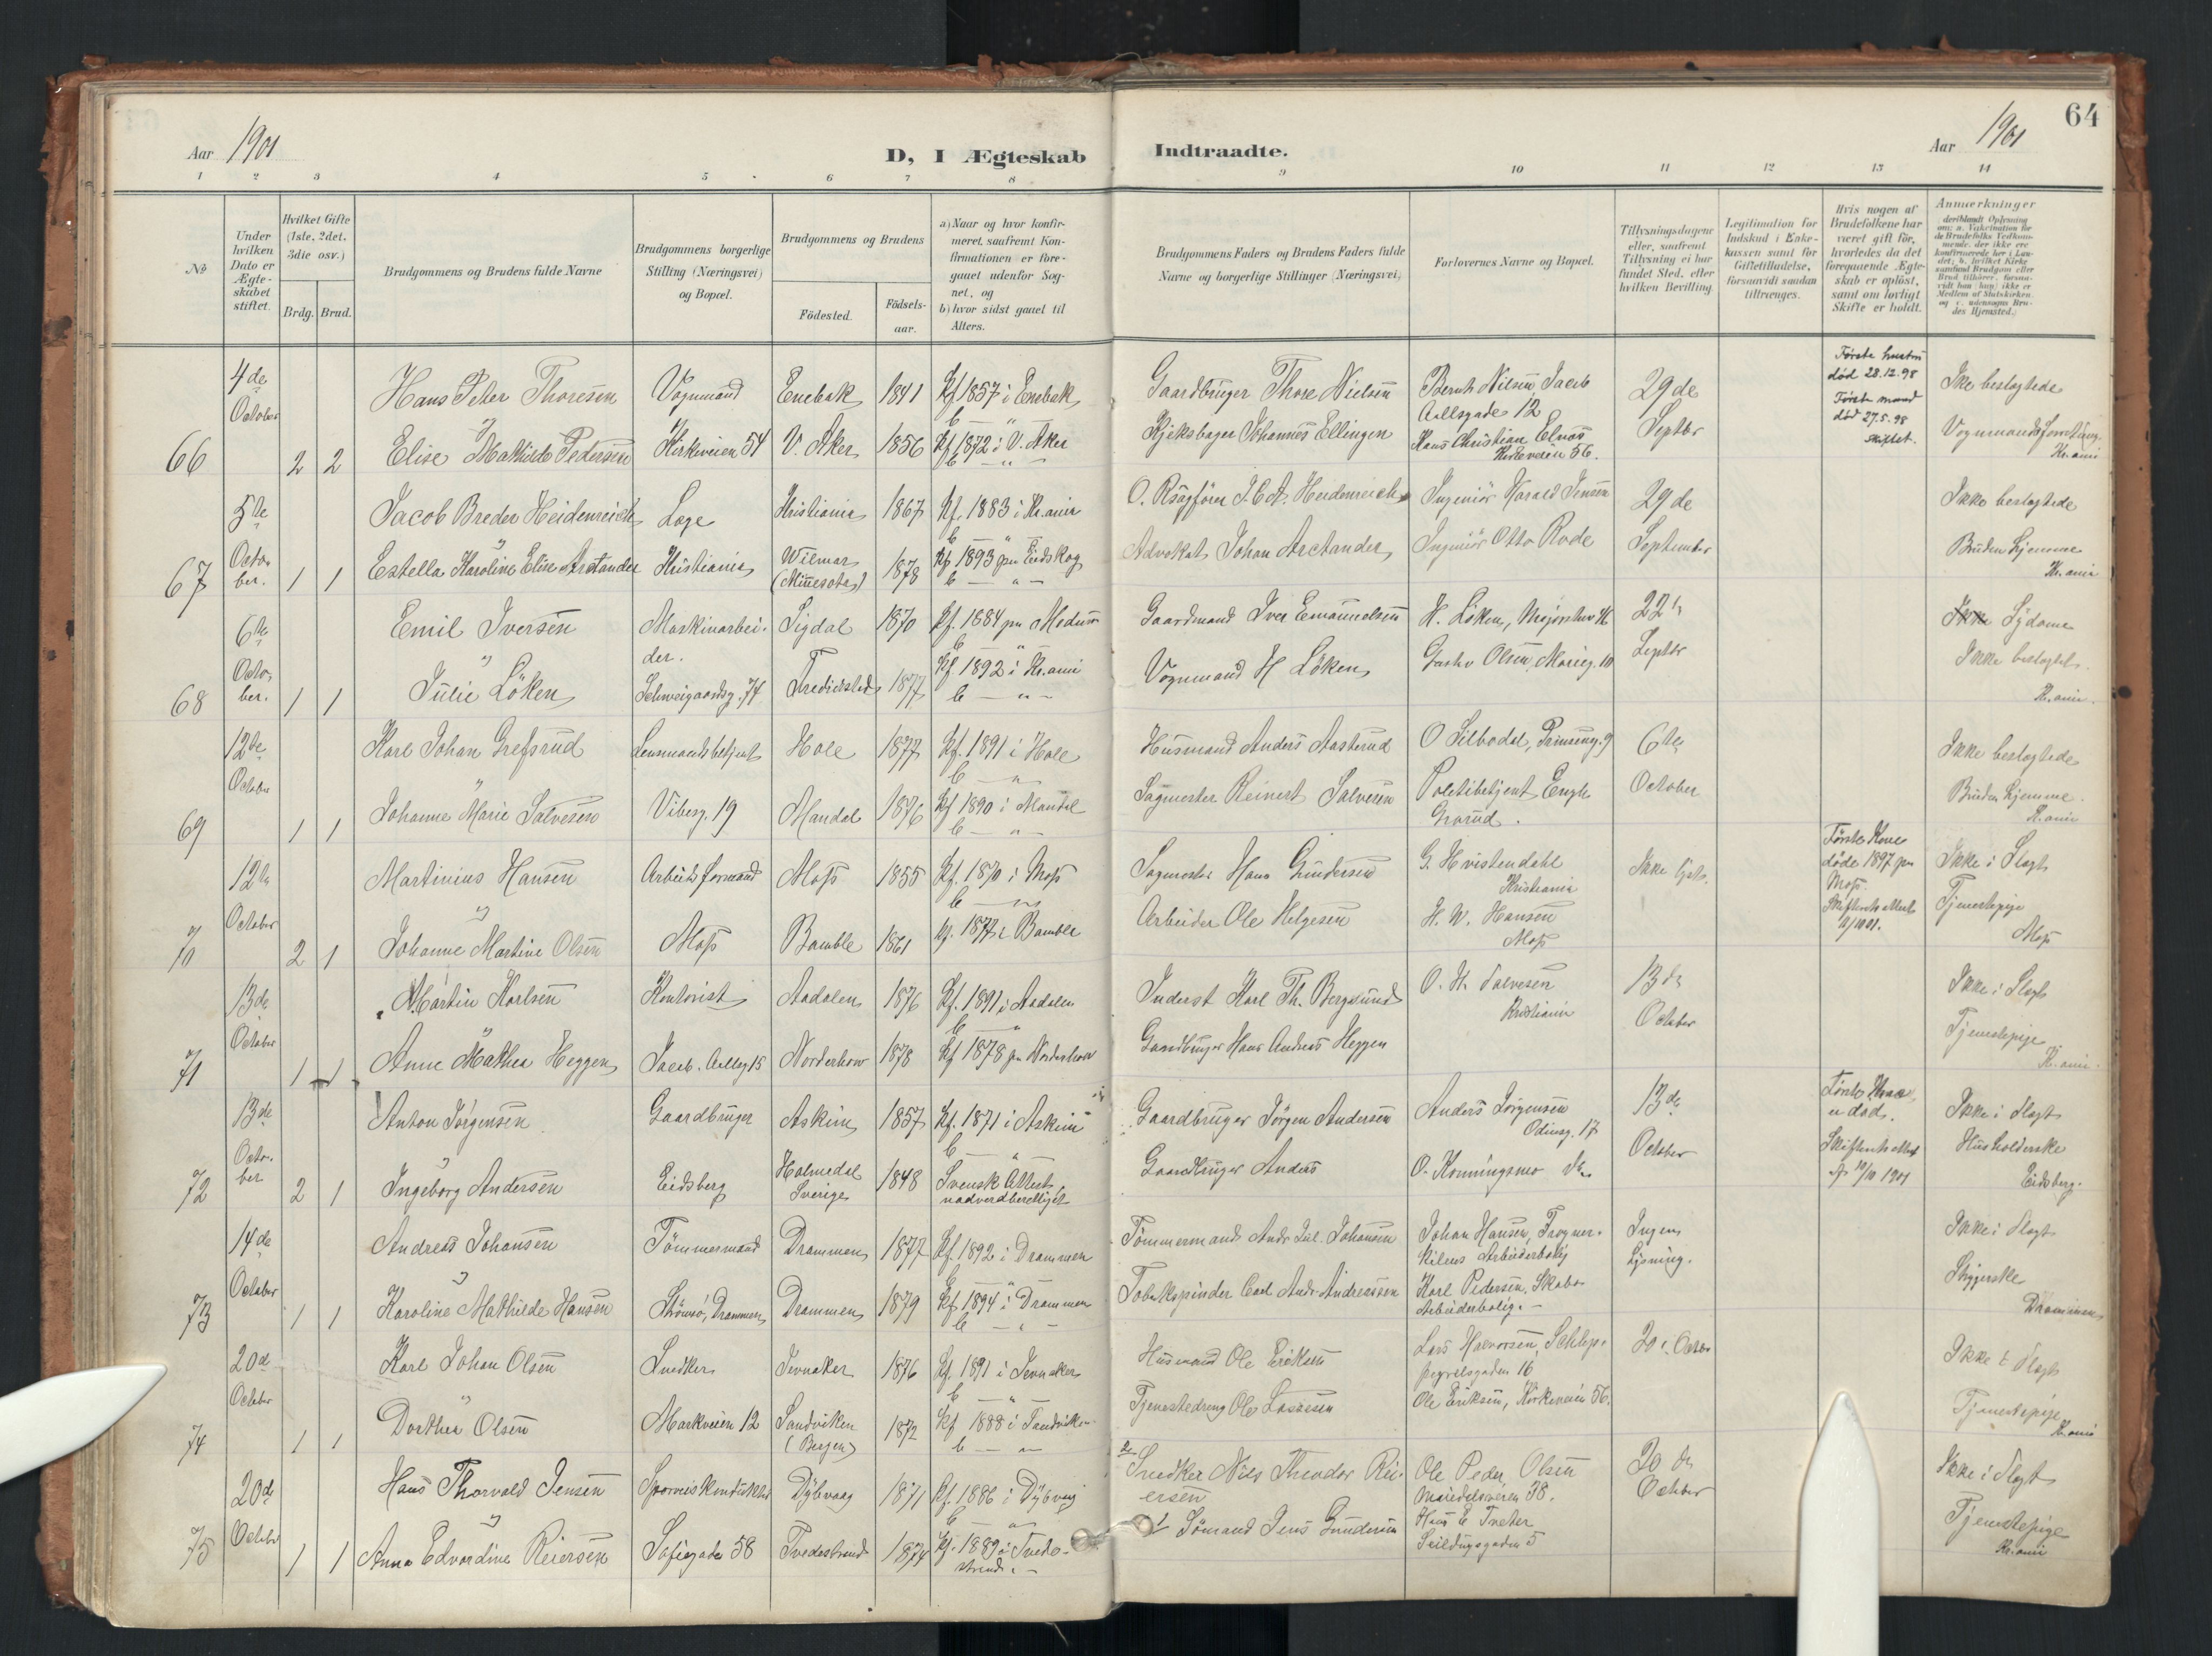 64
Aar 1901
D, I Ægteskab
Indtraadte.
Aar 1901
1 2 3 4 5 6 7 8 9 10 11 12 13 14
No
Under
hvilken
Dato er
Ægte-
skabet
stiftet.
Hvilket Gifte
(1ste, 2det,
3die osv.)
Brdg. Brud.
Brudgommens og Brudens fulde Navne
Brudgommens borgerlige
Stilling (Næringsvei)
og Bopæl.
Brudgommens og Brudens
Födested.
Födsels-
aar.
a) Naar og hvor konfir-
meret, saafremt Kon-
firmationen er fore-
gaaet udenfor Sog-
net, og
b) hvor sidst gaaet til
Alters.
Brudgommens Faders og Brudens Faders fulde
Navne og borgerlige Stillinger (Næringsvei)
Forlovernes Navne og Bopæl.
Tillysningsdagene
eller, saafremt
Tillysning ei har
fundet Sted, efter
hvilken Bevilling.
Legitimation for
Indskud i Enke-
kassen samt for
Giftetilladelse,
forsaavidt saadan
tiltrænges.
Hvis nogen af
Brudefolkene har
været gift för,
hvorledes da det
foregaaende Ægte-
skab er oplöst,
samt om lovligt
Skifte er holdt.
Anmærkninger
(deriblandt Oplysning
om: a. Vakcination for
de Brudefolks Vedkom-
mende, der ikke ere
konfirmerede her i Lan-
det; b. hvilket Kirke-
samfund Brudgom eller
Brud tilhörer, forsaa-
vidt han (hun) ikke er
Medlem af Statskirken,
og c. udensogns Bru-
des Hjemsted.)
66
4de
October
2 2
Hans Peter Thoresen
"
Elise Mathilde Pedersen
Vognmand
Kirkeveien 54
Enebak 1841
V. Aker 1856
Kf 1857 i Enebak
b — " —
Kf 1872 i V. Aker
b — " —
Gaardbruger Thore Nielsen
Kjeksbager Johannes Ellingen
Bernh Nilsen, Jacob
Aallsgade 12
Hans Christian
Kirkeveien 56.
29de
Septbr
Første hustru
død 28.12.98
Første mand
død 27.5.98
skiftet.
Ikke beslægtede
Kr.ania
67
5te
Octo-
ber.
1 1
Jacob Breder Heidenreich
"
Estella Karoline Elise Arctander
Læge
Kristiania
Kristiania 1867
Wilmar
(Minesota) 1878
Kf. 1883 i Kr.ania
b "
Kf 1893 paa Eidskog
b — " —
O. Rsagfører J. C. A. Heidenreich
Advokat Johan Arctander
Ingeniör Harald Jensen
Ingeniör Otto Rode
29de
September
Ikke beslægtede
Bruden hjemme
Kr.ania
68
6te
Octo-
ber.
1 1
Emil Iversen
"
Julie Löken
Maskinarbei-
der.
Schweigaardsg. 74
Sigdal 1870
Fredriksstad 1877
Kf. 1884 paa Modum
b "
Kf 1892 i Kr.ania
b — " —
Gaardmand Iver Emanuelsen
Vognmand H Löken
H. Löken,
Olsen, Marieg. 10
22de
Septbr
Sydame
Ikke beslægtet.
Kr.ania.
69
12te
October
1 1
Karl Johan Grefsrud
"
Johanne Marie Salvesen
Lensmandsbetjent
Vibesg. 19
Hole 1877
Mandal 1876
Kf. 1891 i Hole
b — " —
Kf 1890 i Mandal
b — " —
Husmand Anders Aasterud
Sagmester Reinert Salvesen
O Silbodal, Prinseng. 9
Politibetjent Engh
Grorud.
6te
October
Ikke beslægtede
Bruden hjemme.
Kr.ania
70
12te
October
2 1
Martinius Hansen
"
Johanne Martine Olsen
Arbeidsformand
Moss
Moss 1855
Bamble 1861
Kf. 1870 i Moss
b — " —
Kf. 1877 i Bamble
Sagmester Hans Gundersen
Arbeider Ole Helgesen
G. Hvistendahl
Kristiania
H. W. Hansen
Moss
Ikke lyst.
Første Kone
døde 1897 paa
Moss.
Ikke i Slægt
Tjenestepige
Moss
71
13de
October
1 1
Martin Karlsen
"
Anne Mathea Heggen
Kontorist
Jacob. Aallsg 15
Aadalen 1876
Norderhov 1878
Kf. 1891 i Aadalen
b — "
Kf 1878 paa Norderhov
Inderst Karl Th. Bergsund
Gaardbruger Hans Andreas Heggen
O. H. Salvesen
Kristiania
13de
October
Ikke i Slægt
Tjenestepige
Kr.ania.
72
13de
Octo-
ber
2 1
Anton Jörgensen
"
Ingeborg Andersen
Gaardbruger
Eidsberg
Askim 1857
Holmedal
Sverige 1848
Kf. 1871 i Askim
b — "
Svensk Attest
nadverdberettiget
Gaardbruger Jörgen Andersen
Gaardbruger Anders
Anders Jörgensen
Odinsg. 17
O. Konningsmo
13de
October
Første Kone
er død.
Skifteattest
Ikke i Slægt
Husholderske
Eidsberg.
73
14de
October
1 1
Andreas Johansen
"
Karoline Mathilde Hansen
Tömmermand
Strömsö, Drammen
Drammen 1877
Drammen 1879
Kf. 1892 i Drammen
b — "
Kf 1894 i Drammen
b — " —
Tömmermand Andr. Jul. Johansen
Tobakspinder Carl Andr. Andreassen
Johan Hansen, Frogner-
kilens Arbeiderbolig
Karl Pedersen, Skabo
Arbeiderbolig. —
Ingen
Lysning.
Ikke i Slægt
Drammen
74
20de
October
1 1
Karl Johan Olsen
"
Dorthea Olsen
Snedker
Markveien 12
Jevnaker 1876
Sandviken
(Bergen) 1872
Kf. 1891 i Jevnaker
b — "
Kf 1888 i Sandviken
b — " —
Husmand Ole Eriksen
Tjenestedreng Ole Lassesen
Lars Halvorsen, Schlep-
pegrelsgaden 16
Ole Eriksen, Kirkeveien 56.
20de Octbr
Ikke i Slægt
Tjenestepige
Kr.ania
75
20de
October
1 1
Hans Thorvald Jensen
"
Anna Edvardine Reiersen
Sporveiskonduktör
Sofiegaden 58
Dybvaag 1871
Tvedestrand 1874
Kf. 1886 i Dybvaag
b — "
Kf. 1889 i Tvede-
strand. —
2 Snedker Nils Theodor Rei-
ersen
1 Sömand Jens Gundersen
Ole Peder Olsen
Maridalsveien 38.
Hans E Tveter
Seilduksgaden 5
20de
October
Ikke i Slægt
Tjenestepige
Kr.ania